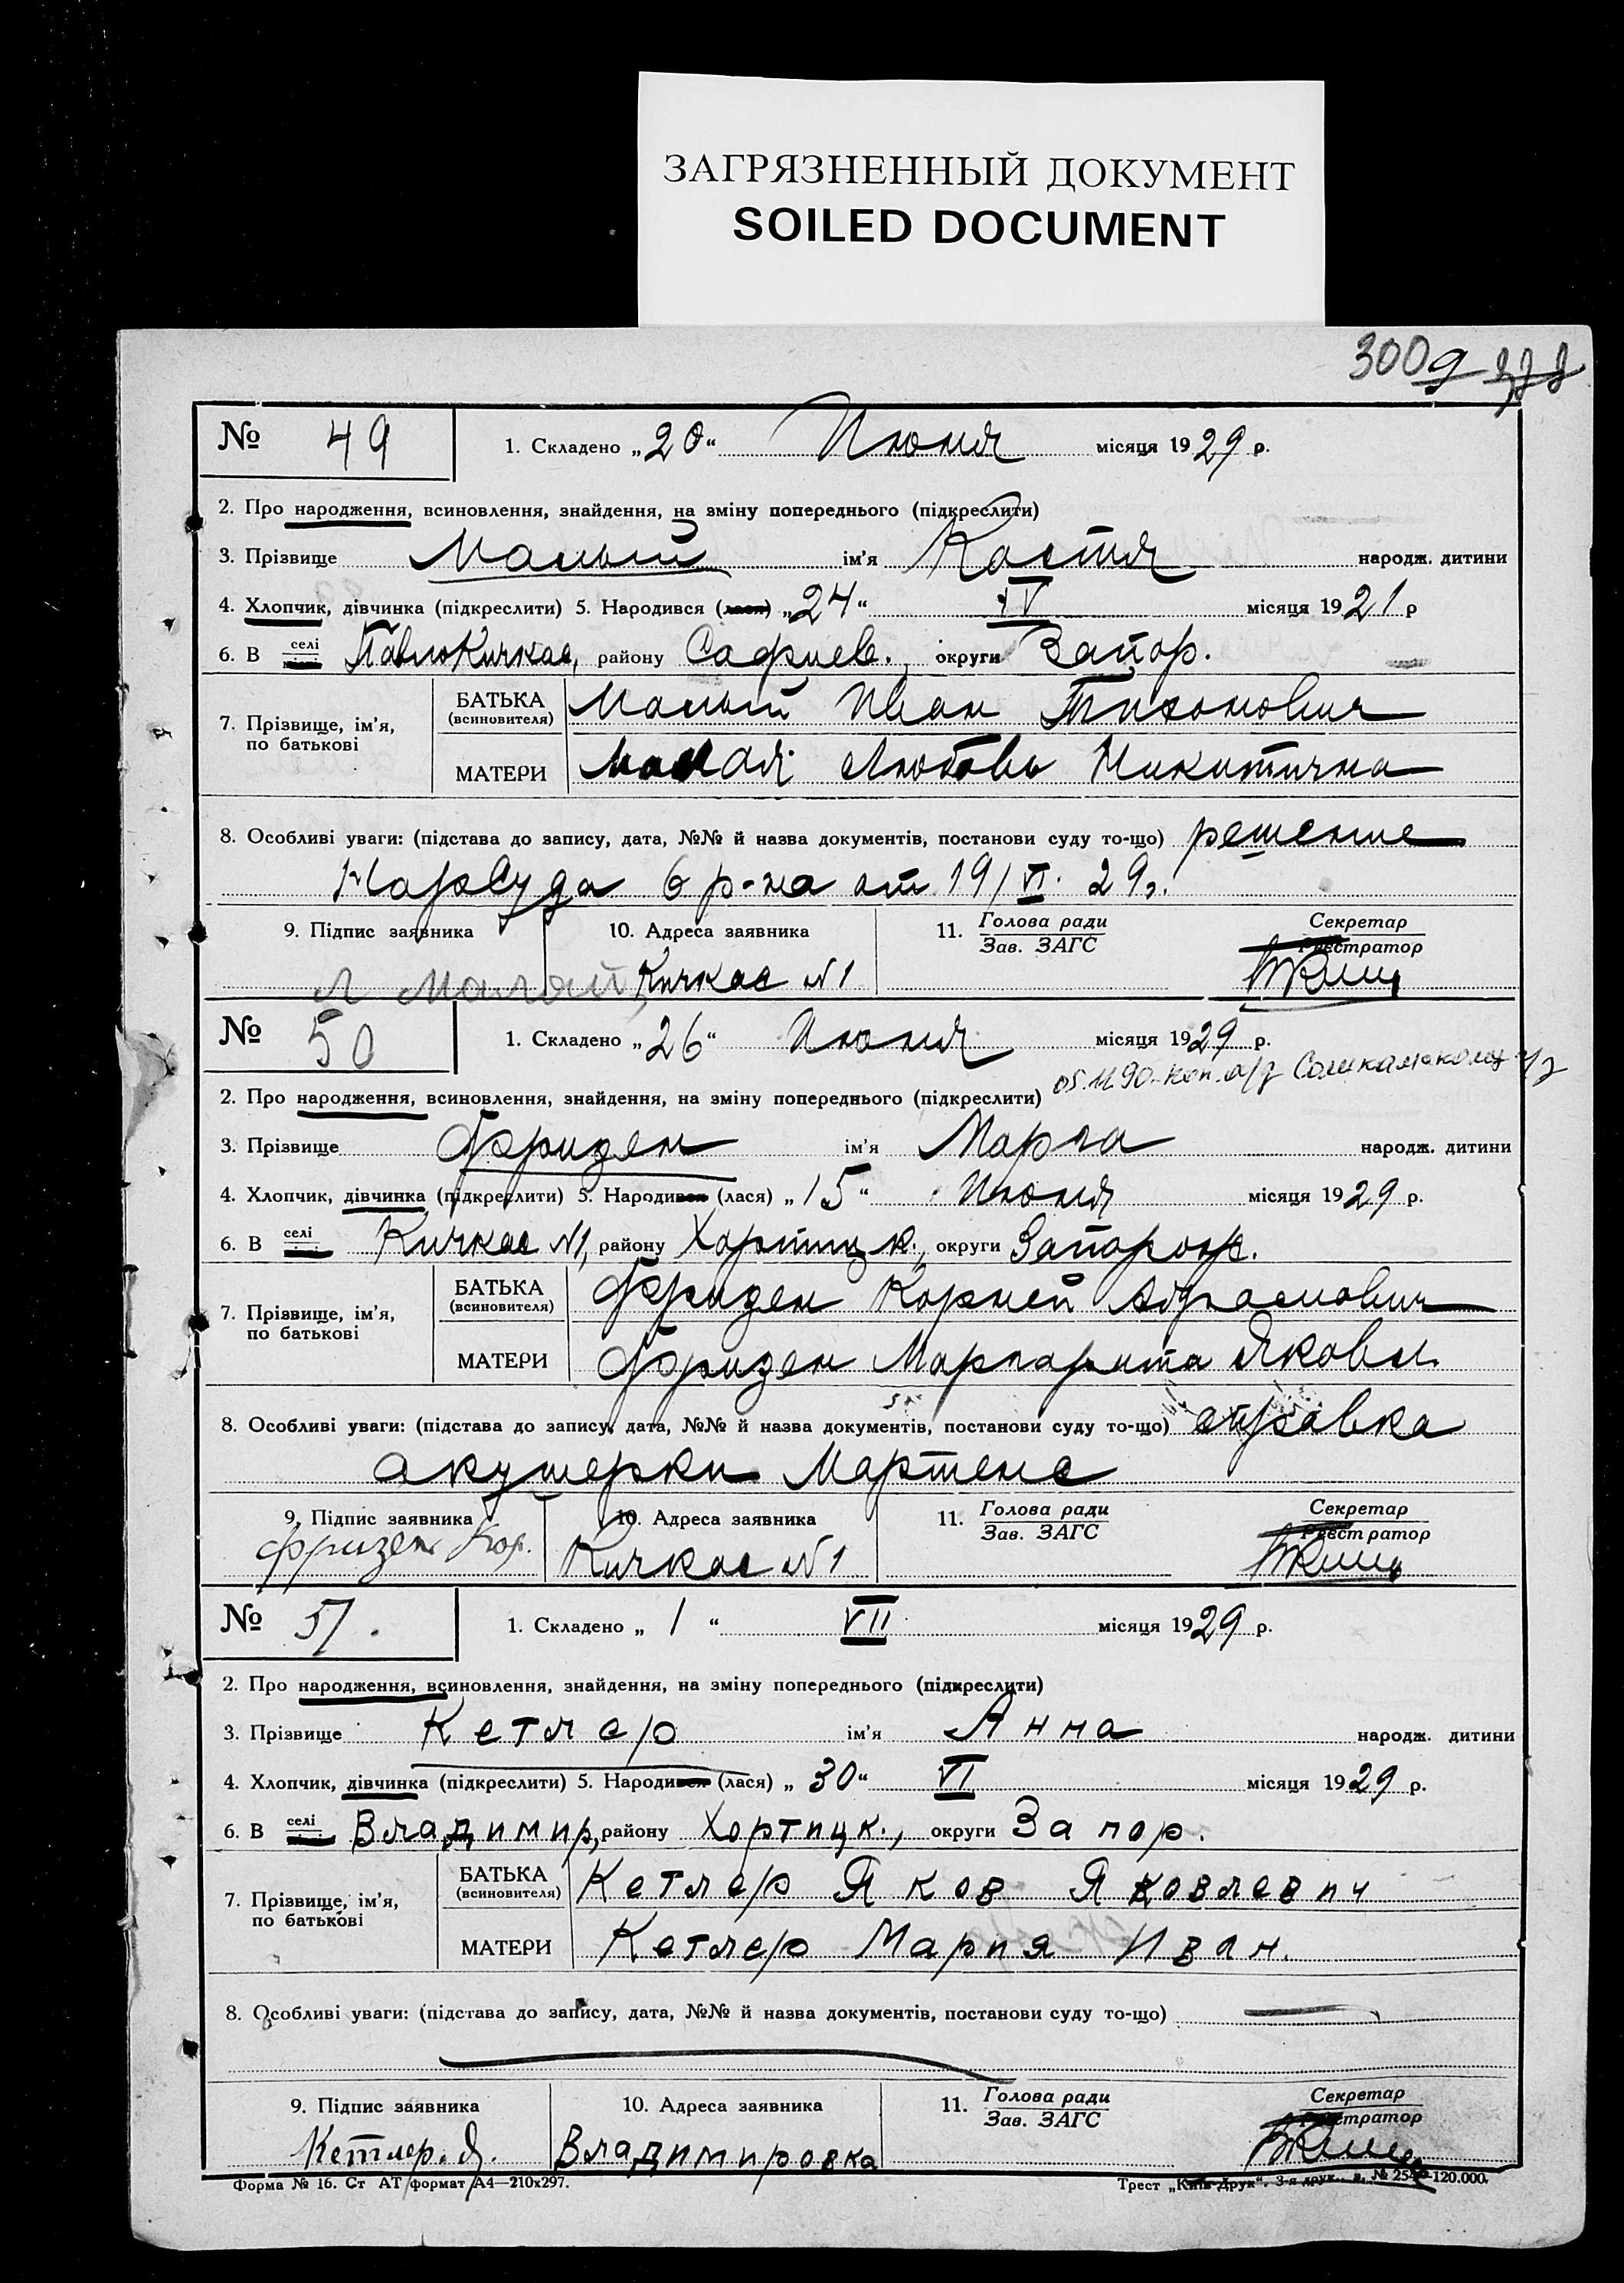 ЗАГРЯЗНЕННЫЙ ДОКУМЕНТ
SOILED DOCUMENT
300
№ 49 1. Складено „20“ Июня місяця 1929 р.
2. Про народження, всиновлення, знайдення, на зміну попереднього (підкреслити)
3. Прізвище Малый ім'я Костя народж. дитини
4. Хлопчик, дівчинка (підкреслити) 5. Народився (лася) „24“ IV місяця 1921 р
6. В селі ПавлоКичкас, району Софиев., округи Запор.
7. Прізвище, ім'я, по батькові
БАТЬКА (всиновителя) Малый Иван Тихонович
МАТЕРИ Малая Любовь Никитична
8. Особливі уваги: (підстава до запису, дата, №№ й назва документів, постанови суду то-що) решение
Нарсуда 6 р-на от 19/VI. 29г.
9. Підпис заявника 10. Адреса заявника 11. Голова ради Зав. ЗАГС Секретар Реєстратор
Л Малая Кичкас №1
№ 50 1. Складено „26“ Июня місяця 1929 р.
05.11.90
2. Про народження, всиновлення, знайдення, на зміну попереднього (підкреслити)
3. Прізвище Фризен ім'я Марга народж. дитини
4. Хлопчик, дівчинка (підкреслити) 5. Народився (лася) „15“ Июня місяця 1929 р.
6. В селі Кичкас №1, району Хортицк., округи Запорож.
7. Прізвище, ім'я, по батькові
БАТЬКА (всиновителя) Фризен Корней Абрамович
МАТЕРИ Фризен Маргарита Яковл.
8. Особливі уваги: (підстава до запису, дата, №№ й назва документів, постанови суду то-що) справка
акушерки Мартенс
9. Підпис заявника 10. Адреса заявника 11. Голова ради Зав. ЗАГС Секретар Реєстратор
Фризен Кор. Кичкас №1
№ 51. 1. Складено „1“ VII місяця 1929 р.
2. Про народження, всиновлення, знайдення, на зміну попереднього (підкреслити)
3. Прізвище Кетлер ім'я Анна народж. дитини
4. Хлопчик, дівчинка (підкреслити) 5. Народився (лася) „30“ VI місяця 1929 р.
6. В селі Владимир, району Хортицк., округи Запор.
7. Прізвище, ім'я, по батькові
БАТЬКА (всиновителя) Кетлер Яков Яковлевич
МАТЕРИ Кетлер Мария Иван.
8. Особливі уваги: (підстава до запису, дата, №№ й назва документів, постанови суду то-що)
9. Підпис заявника 10. Адреса заявника 11. Голова ради Зав. ЗАГС Секретар Реєстратор
Кетлер. Я. Владимировка
Форма № 16. Ст АТ формат А4—210х297. Трест „Київ-Друк“. 3-я друк. 120.000.